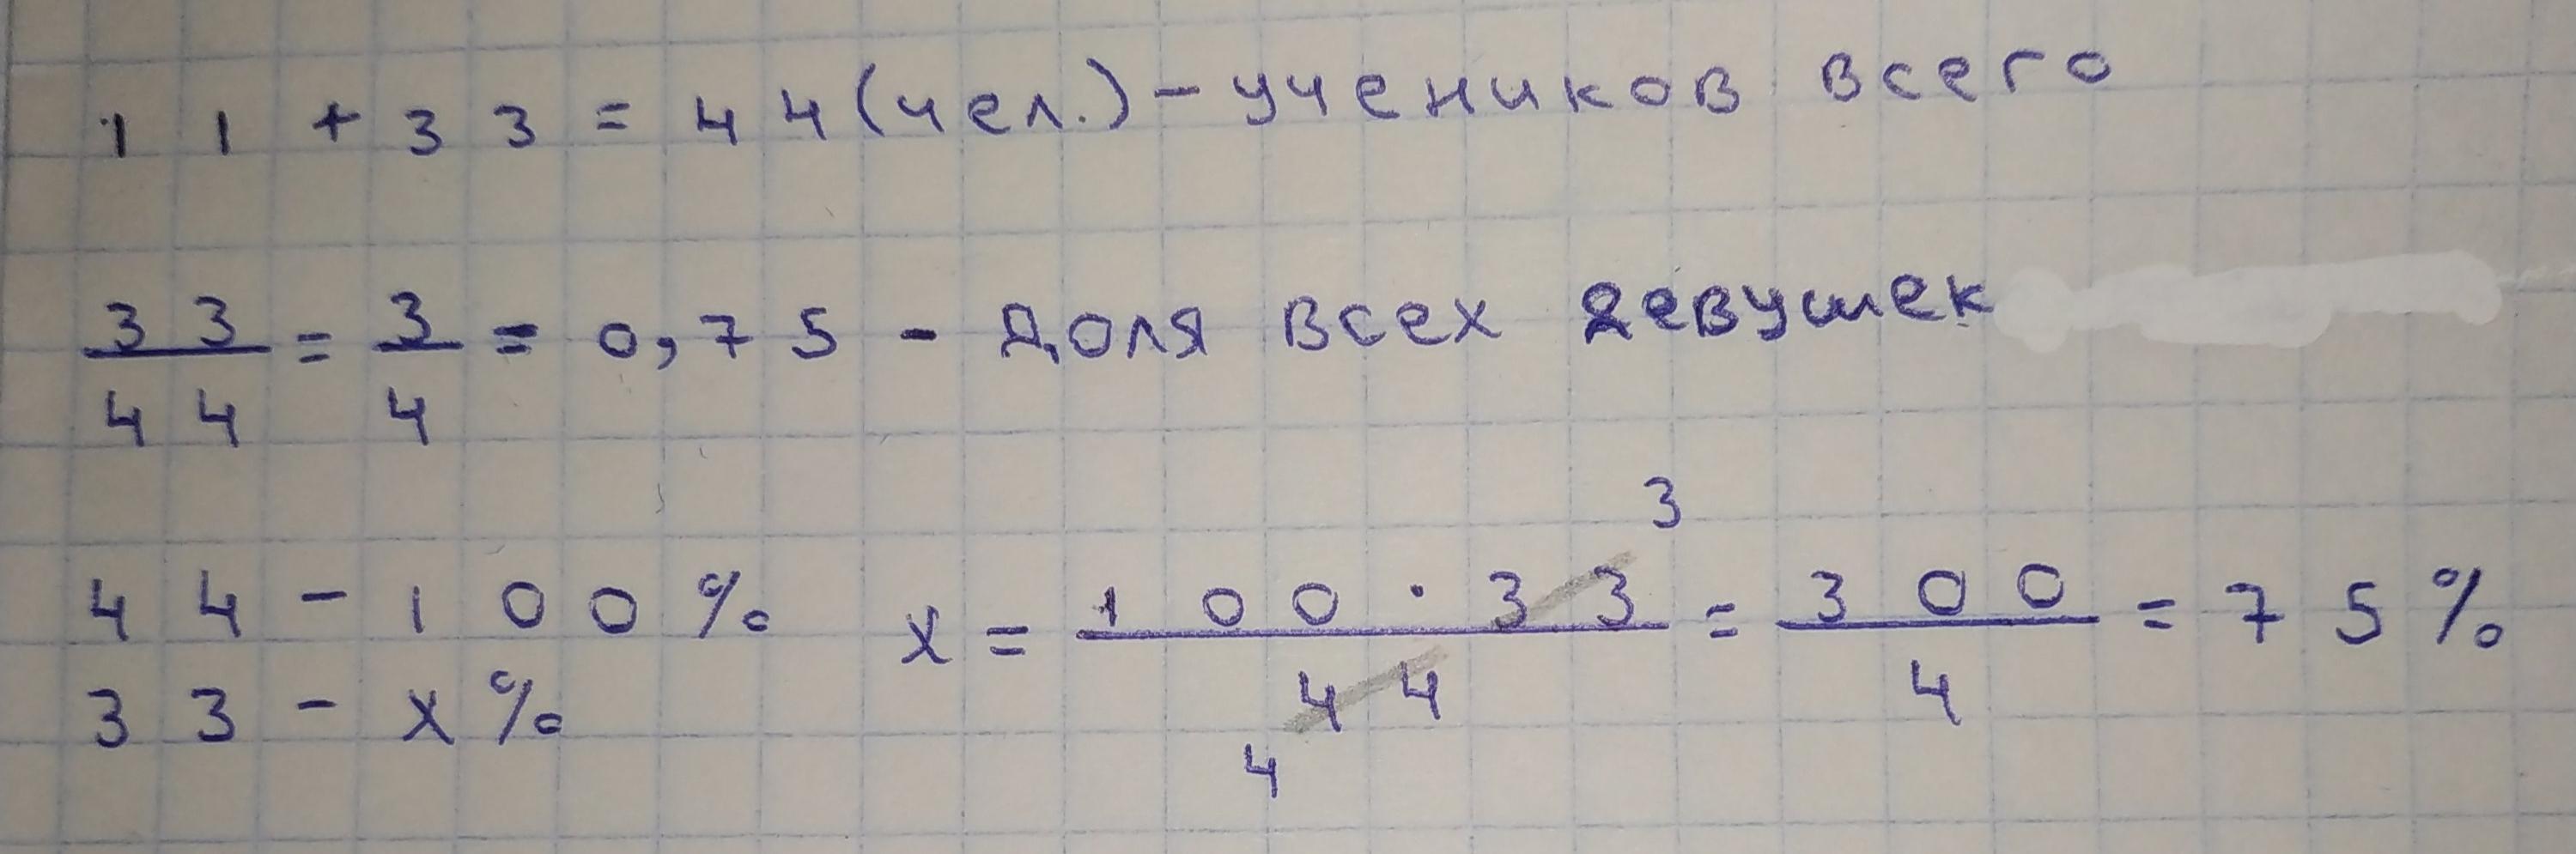 11+33=44(чел.)-учеников всего
33/44=3/4=0,75-доля всех девушек
44-100% x=100·33/44=300/4=75%
3
33-x%
4